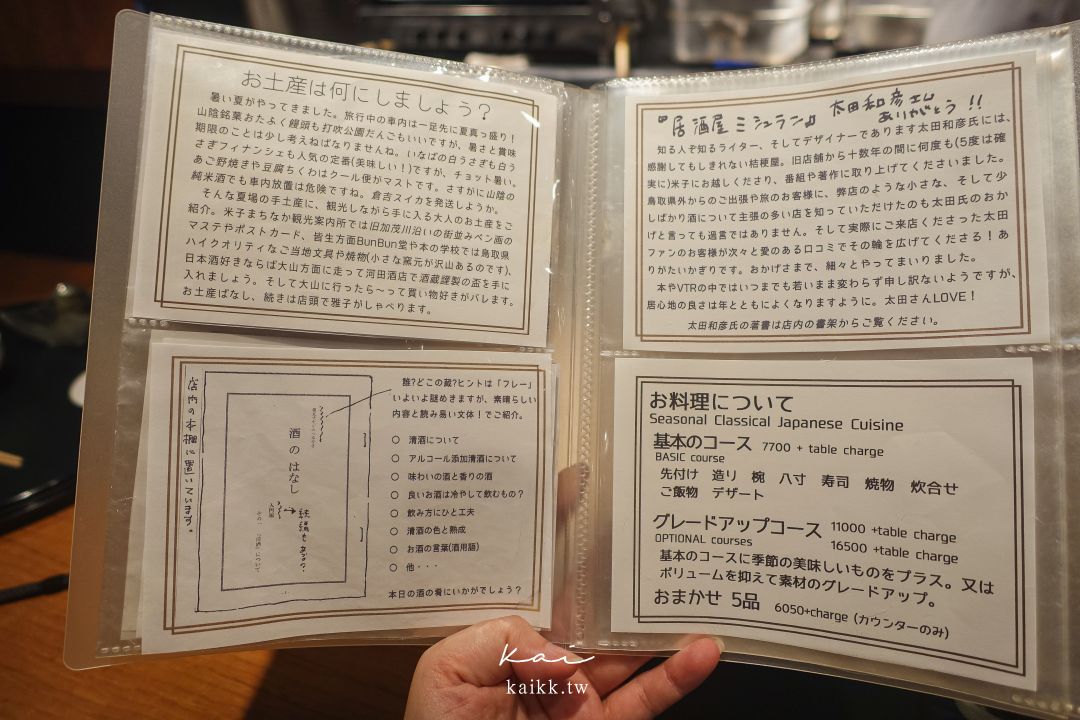 お土産は何にしましょう？
暑い夏がやってきました。旅行中の車内は一足先に夏真っ盛り！
山陰銘菓おたふく饅頭も打吹公園だんごもいいですが、暑さと賞味
期限のことは少し考えねばなりませんね。いなばの白うさぎも白う
さぎフィナンシェも人気の定番(美味しい！)ですが、チョット暑い。
あご野焼きや豆腐ちくわはクール便がマストです。さすがに山陰の
純米酒でも車内放置は危険ですね。倉吉スイカを発送しようか。
そんな夏場の手土産に、観光しながら手に入る大人のお土産をご
紹介。米子まちなか観光案内所では旧加茂川沿いの街並みペン画の
マステやポストカード、皆生方面BunBun堂や本の学校では鳥取県
ハイクオリティなご当地文具や焼物(小さな窯元が沢山あるのです)、
日本酒好きならば大山方面に走って河田酒店で酒蔵謹製の盃を手に
入れましょう。そして大山に行ったら～って買い物好きがバレます。
お土産ばなし、続きは店頭で雅子がしゃべります。
店内の本棚に置いています。
酒のはなし
入門編
誰?どこの蔵?ヒントは「フレー」
いよいよ謎めきますが、素晴らしい
内容と読み易い文体！でご紹介。
○ 清酒について
○ アルコール添加清酒について
○ 味わいの酒と香りの酒
○ 良いお酒は冷やして飲むもの？
○ 飲み方にひと工夫
○ 清酒の色と熟成
○ お酒の言葉(酒用語)
○ 他・・・
本日の酒の肴にいかがでしょう？
『居酒屋ミシュラン』 太田和彦さん
ありがとう!!
知る人ぞ知るライター、そしてデザイナーであります太田和彦氏には、
感謝してもしきれない桔梗屋。旧店舗から十数年の間に何度も(5度は確
実に)米子にお越しくださり、番組や著作に取り上げてくださいました。
鳥取県外からのご出張や旅のお客様に、弊店のような小さな、そして少
しばかり酒について主張の多い店を知っていただけたのも太田氏のおか
げと言っても過言ではありません。そして実際にご来店くださった太田
ファンのお客様が次々と愛のある口コミでその輪を広げてくださる！あ
りがたいかぎりです。おかげさまで、細々とやってまいりました。
本やVTRの中ではいつまでも若いまま変わらず申し訳ないようですが、
居心地の良さは年とともによくなりますように。太田さんLOVE！
太田和彦氏の著書は店内の書架からご覧ください。
お料理について
Seasonal Classical Japanese Cuisine
基本のコース 7700 + table charge
BASIC course
先付け 造り 椀 八寸 寿司 焼物 炊合せ
ご飯物 デザート
グレードアップコース 11000 +table charge
OPTIONAL courses 16500 +table charge
基本のコースに季節の美味しいものをプラス。又は
ボリュームを抑えて素材のグレードアップ。
おまかせ 5品 6050+charge (カウンターのみ)
Kai
kaikk.tw